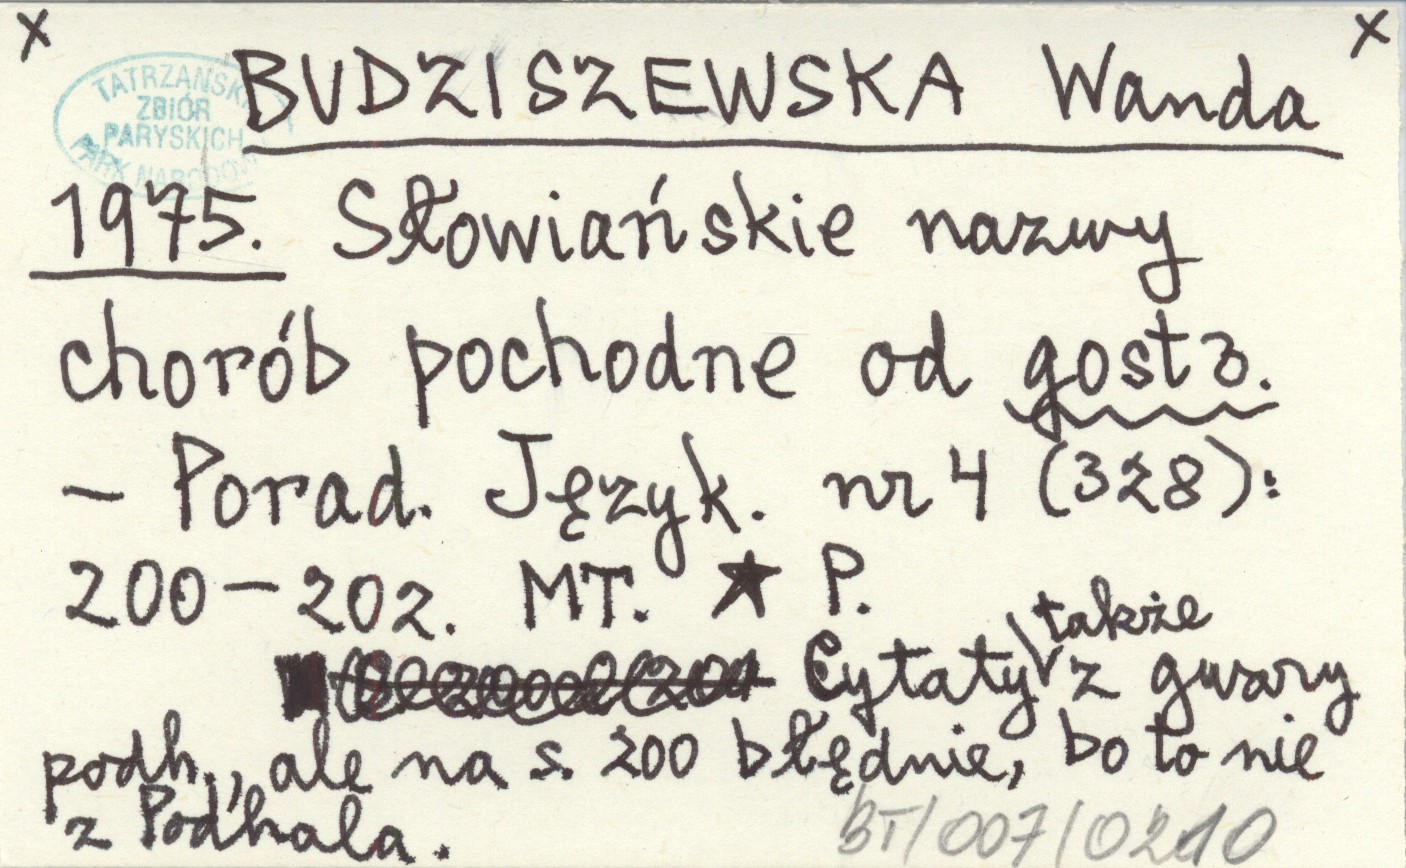 x x
TATRZAŃSKI
ZBIÓR
PARYSKICH
PARK NARODOWY
BUDZISZEWSKA Wanda
1975. Słowiańskie nazwy
chorób pochodne od gostз.
– Porad. Język. nr 4 (328):
200–202. MT. ★ P.
Cytaty także z gwary
podh., ale na s. 200 błędnie, bo to nie
z Podhala.
BT/007/0210